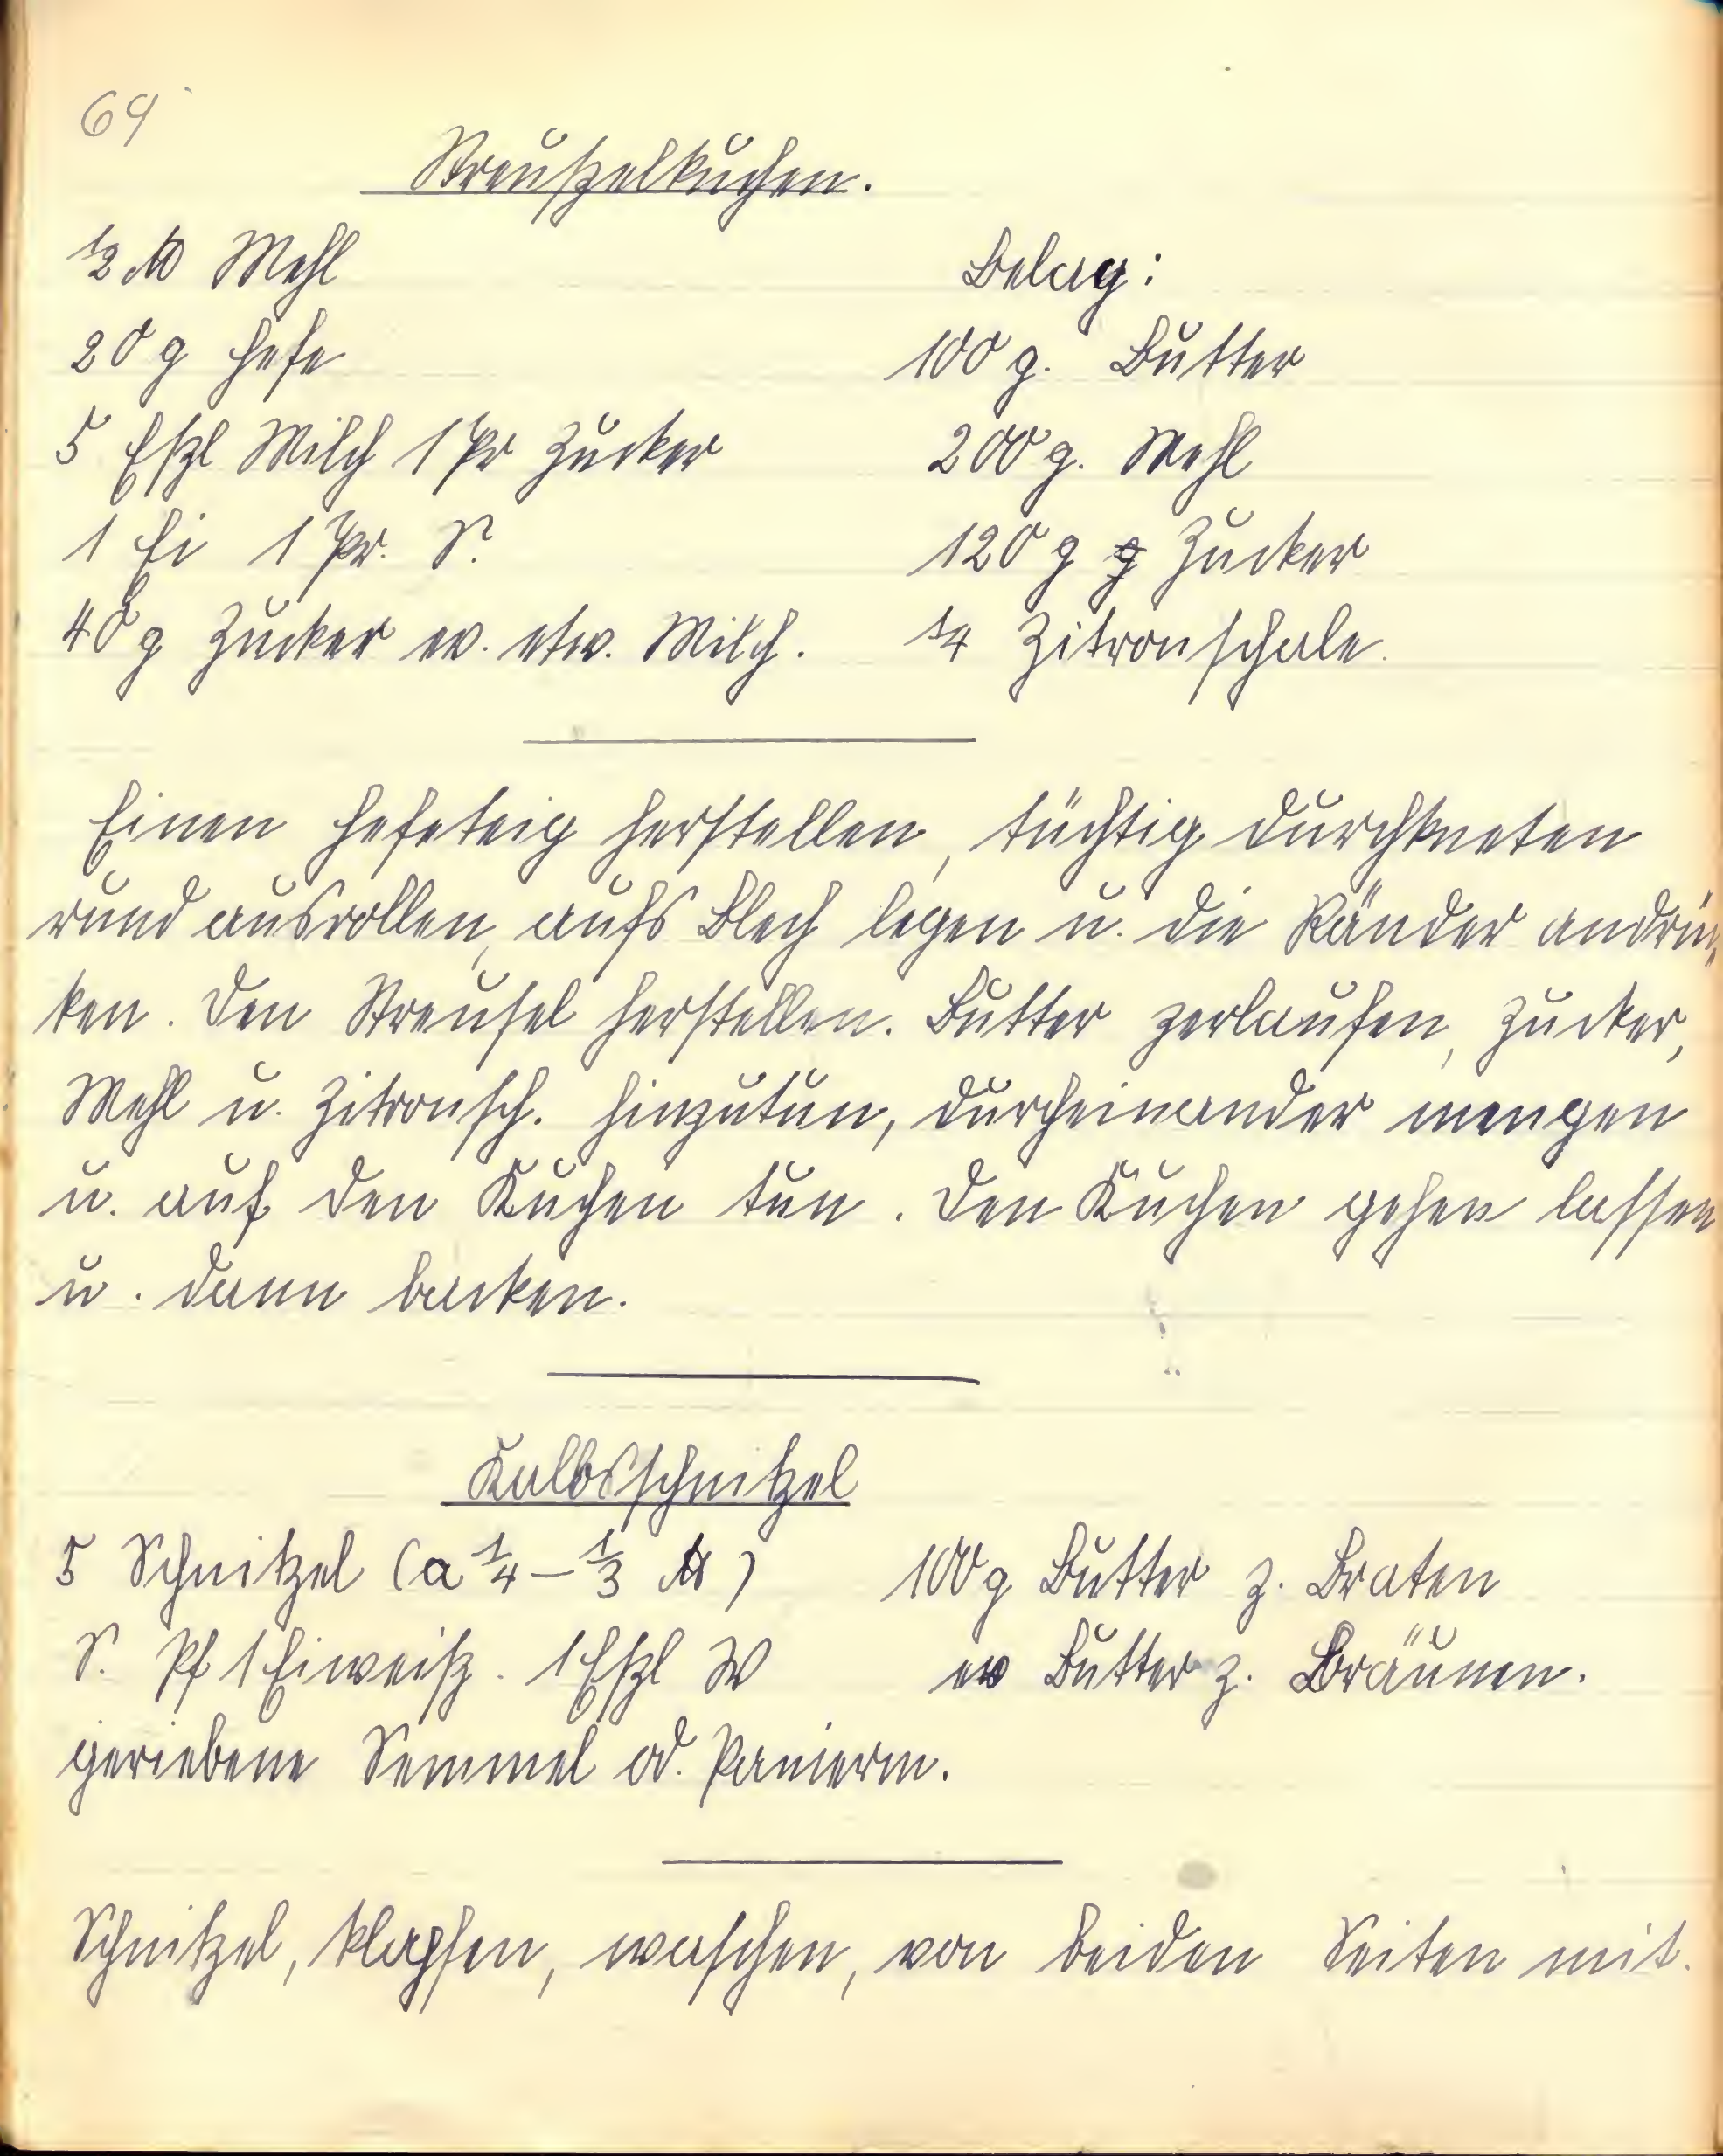 69
Streußelkuchen.
1/2 ℔ Mehl
20 g Hefe
5 Eßl Milch 1 Pr Zucker
1 Ei 1 Pr. S.
40 g Zucker ev. etw. Milch.
Belag:
100 g. Butter
200 g. Mehl
120 g Zucker
1/4 Zitronschale.
Einen Hefeteig herstellen, tüchtig durchkneten
rund ausrollen, aufs Blech legen u. die Ränder andrük-
ken. Den Streusel herstellen. Butter zerlaufen, Zucker,
Mehl u. Zitronsch. hinzutun, durcheinander mengen
u. auf den Kuchen tun. Den Kuchen gehen lassen
u. dann backen.
Kalbsschnitzel
5 Schnitzel (a 1/4 – 1/3 ℔)
S. Pf 1 Eiweiß. 1 Eßl W
geriebene Semmel od. Panierm.
100 g Butter z. Braten
ev Butter z. Bräunen.
Schnitzel, klopfen, waschen, von beiden Seiten mit.